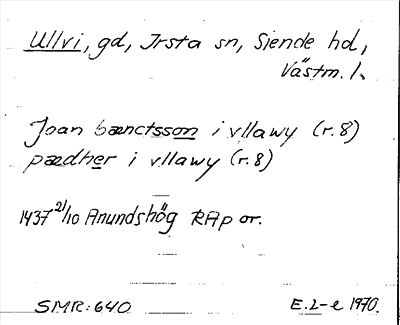 Ullvi, gd, Irsta sn, Siende hd,
Västm. l.
Joan bænctsson i vllawy (r. 8)
pædher i vllawy (r. 8)
1437 21/10 Anundshög RAp or.
SMR: 640 E. L-e 1970.